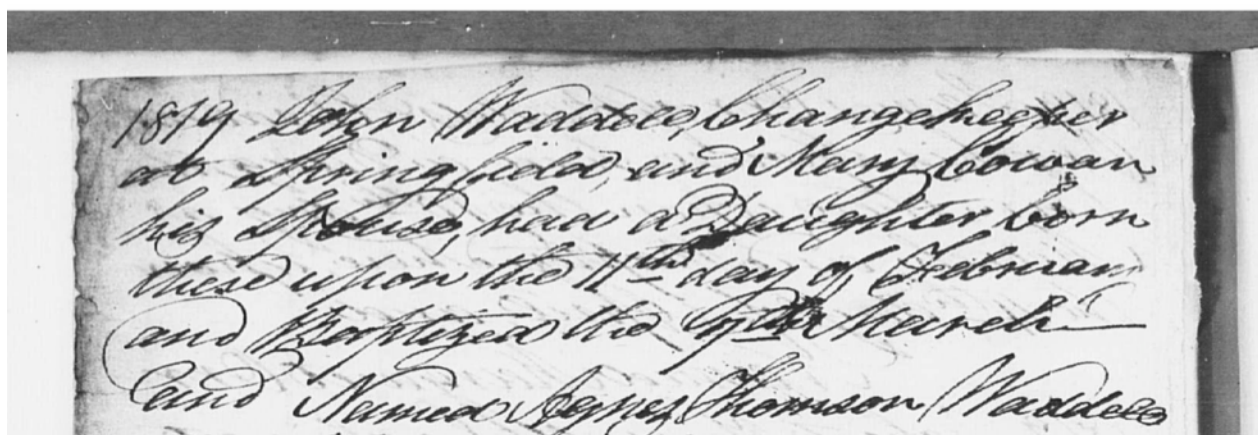 1819 John Waddell, Changekeeper
at Springfield, and Mary Cowan
his Spouse, had a Daughter born
there upon the 11th day of Februar
and Baptized the March
and Named Agnes Thomson Waddell